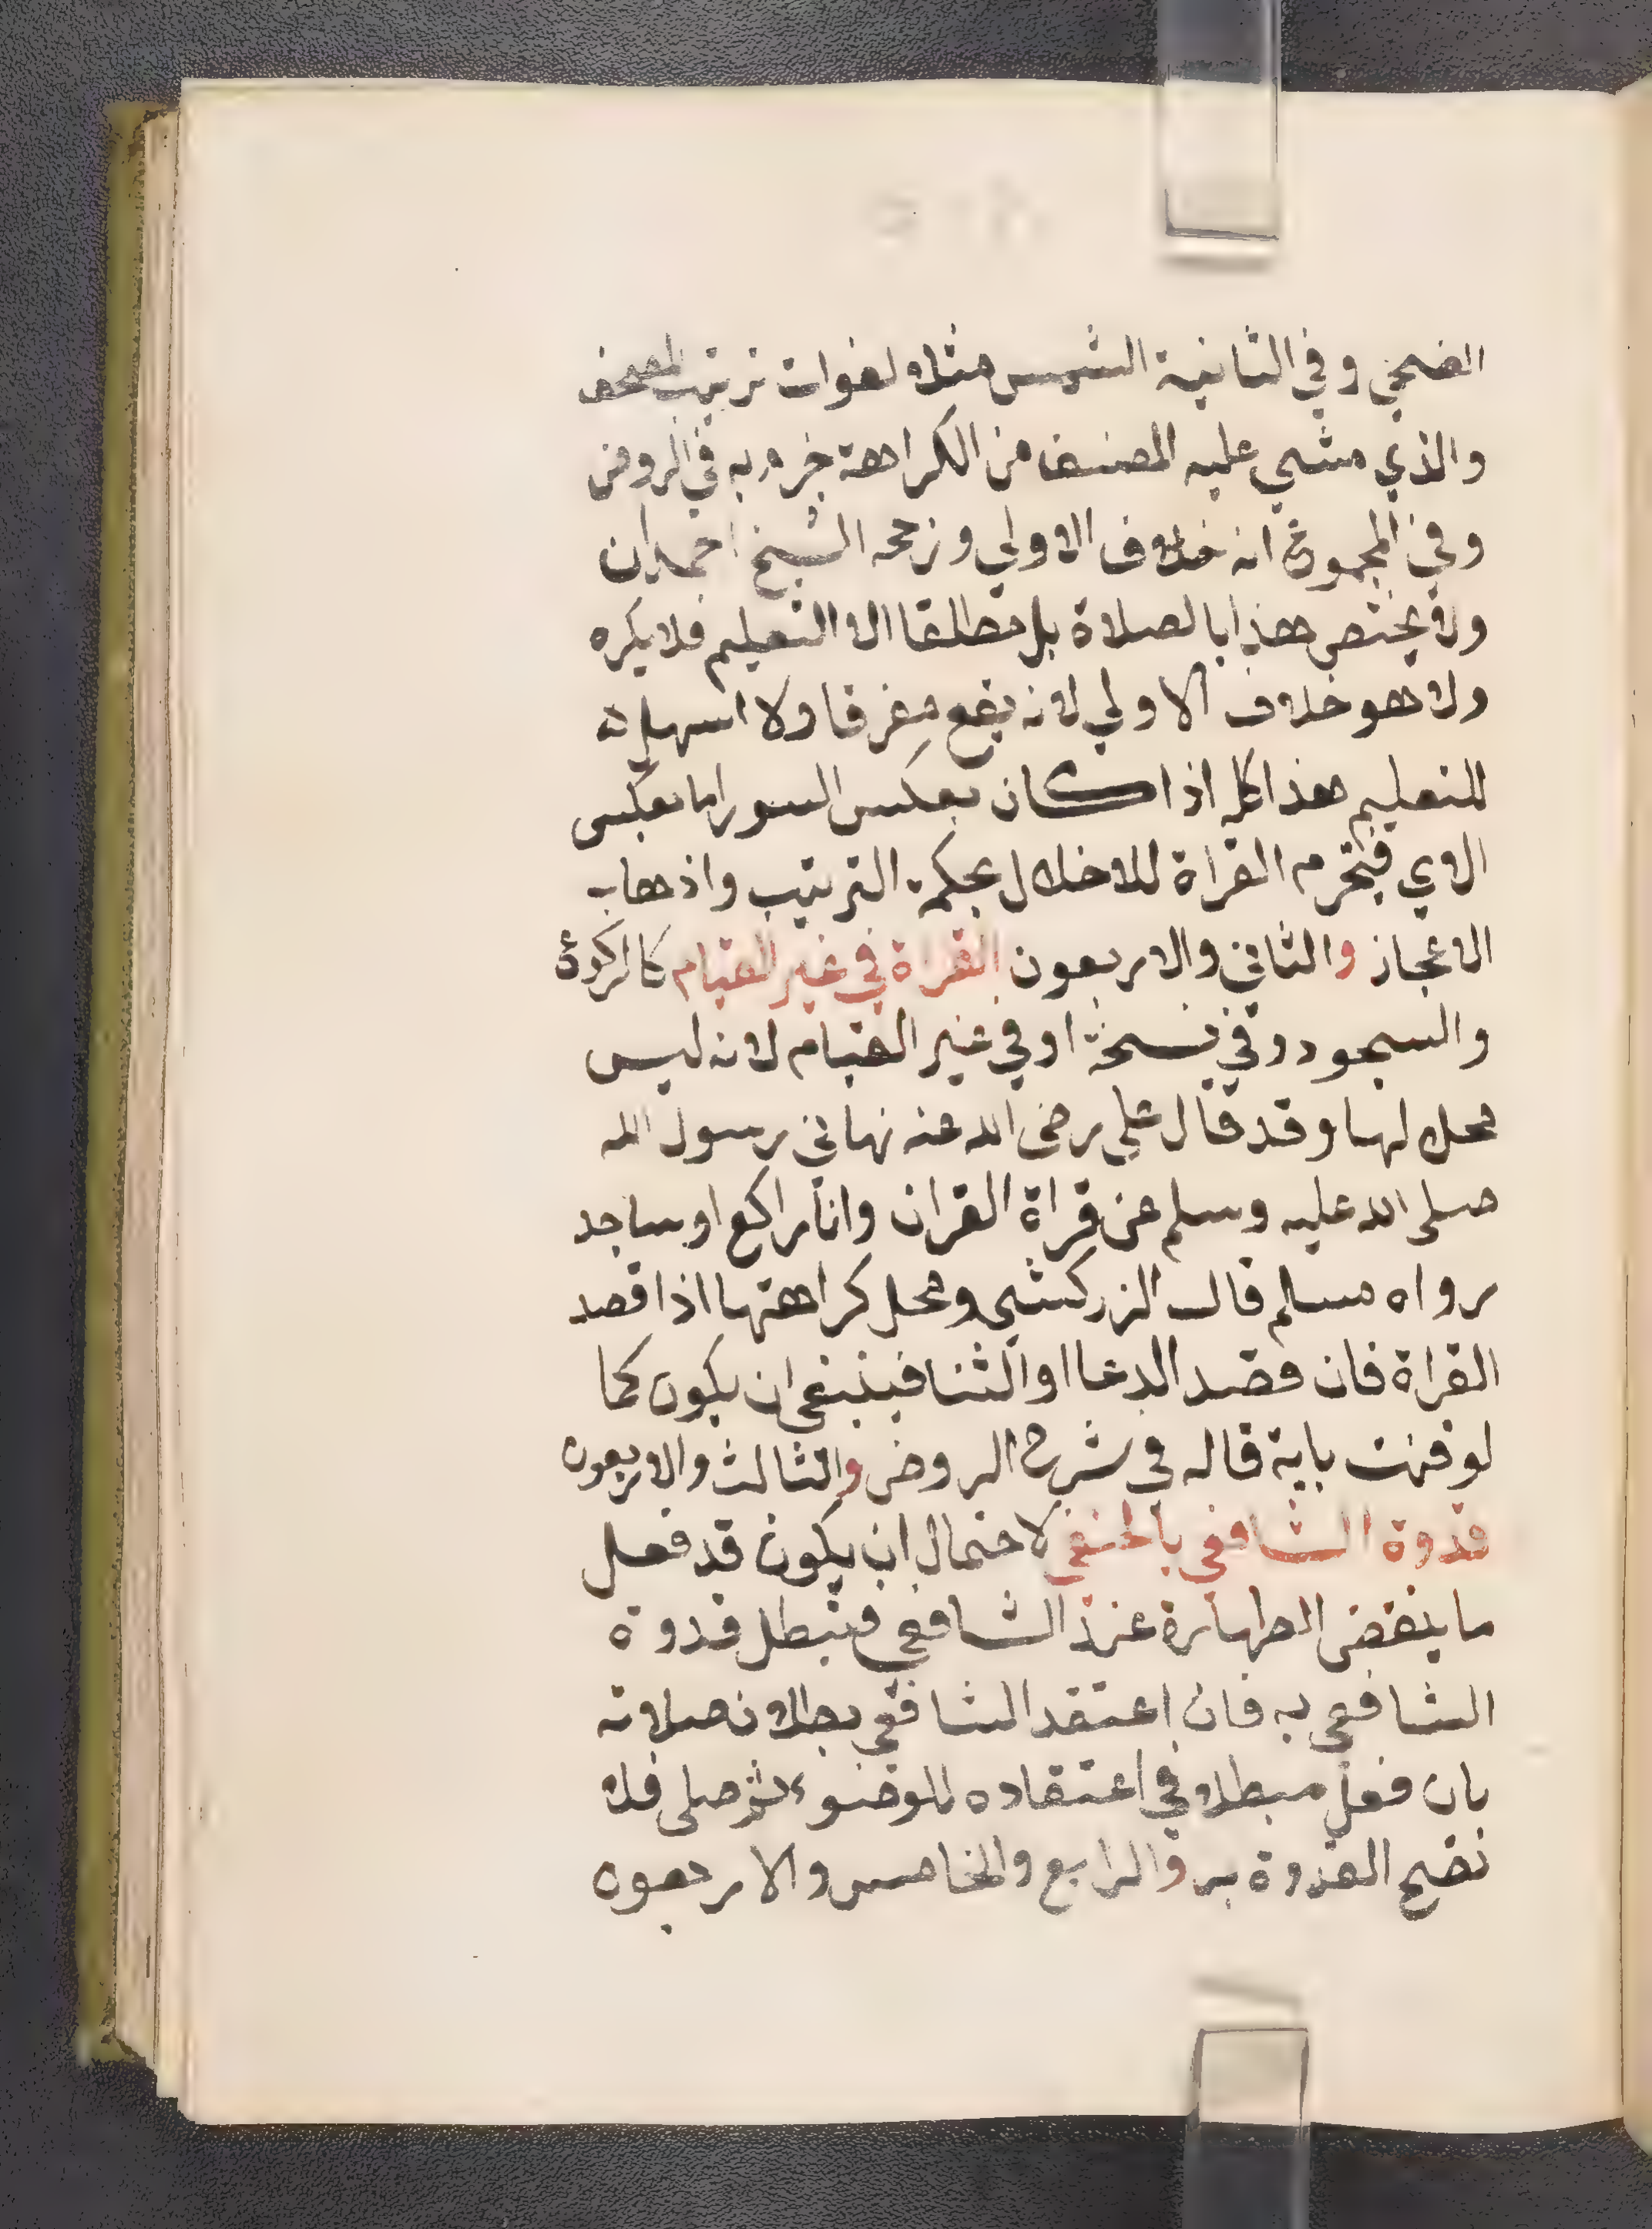 الضحي وفي الثانية الشمس مثلا لفوات ترتيب المصحف
والذي مشي عليه المصنف من الكراهة جزم به في الروض
وفي المجموع انه خلاف الاولي ورجحه الشيخ احمد ان
ولا يختص هذا بالصلاة بل مطلقا الا التعليم فلا يكره
ولا هو خلاف الاولي لانه يقع مفرقا ولا اسهل
للتعليم هذا كله اذا كان بعكس السور اما بعكس
الاي فيحرم القراة للاخلال بحكمة الترتيب واذهاب
الاعجاز والثاني والاربعون القراة في غير القيام كالركوع
والسجود وفي نسخة او في غير القيام لانه ليس
محل لها وقد قال علي رضي الله عنه نهاني رسول الله
صلى الله عليه وسلم عن قراة القران وانا راكع او ساجد
رواه مسلم قال الزركشي ومحل كراهتها اذا قصد
القراة فان قصد الدعا او الثنا فينبغي ان يكون كما
لو قنت باية قاله في شرح الروض والثالث والاربعون
قدوة الشافعي بالحنفي لاحتمال ان يكون قد فعل
ما ينقض الطهارة عند الشافعي فتبطل قدوة
الشافعي به فان اعتقد الشافعي بطلان صلاته
بان فعل مبطلا في اعتقاده للوضوء ثم صلى فلا
تصح القدوة به والرابع والخامس والاربعون